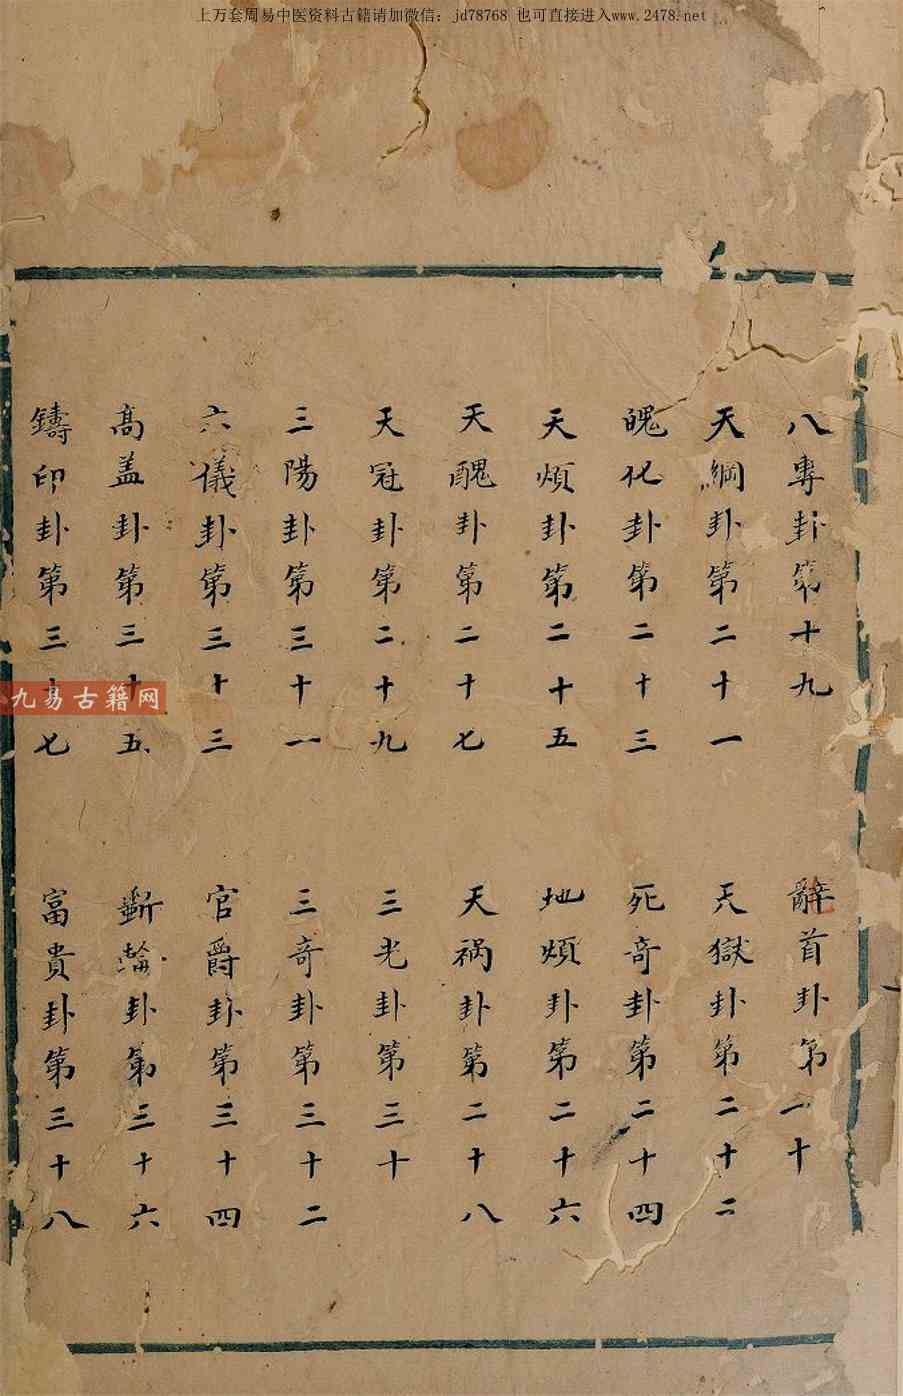 上万套周易中医资料古籍请加微信：jd78768 也可直接进入www.2478.net
八專卦第十九
首卦第一十
天網卦第二十一
天獄卦第二十二
魄化卦第二十三
死奇卦第二十四
天煩卦第二十五
地煩卦第二十六
天醜卦第二十七
天禍卦第二十八
天冠卦第二十九
三光卦第三十
三陽卦第三十一
三奇卦第三十二
六儀卦第三十三
官爵卦第三十四
高盖卦第三十五
斲輪卦第三十六
鑄印卦第三十七
富貴卦第三十八
九易古籍网